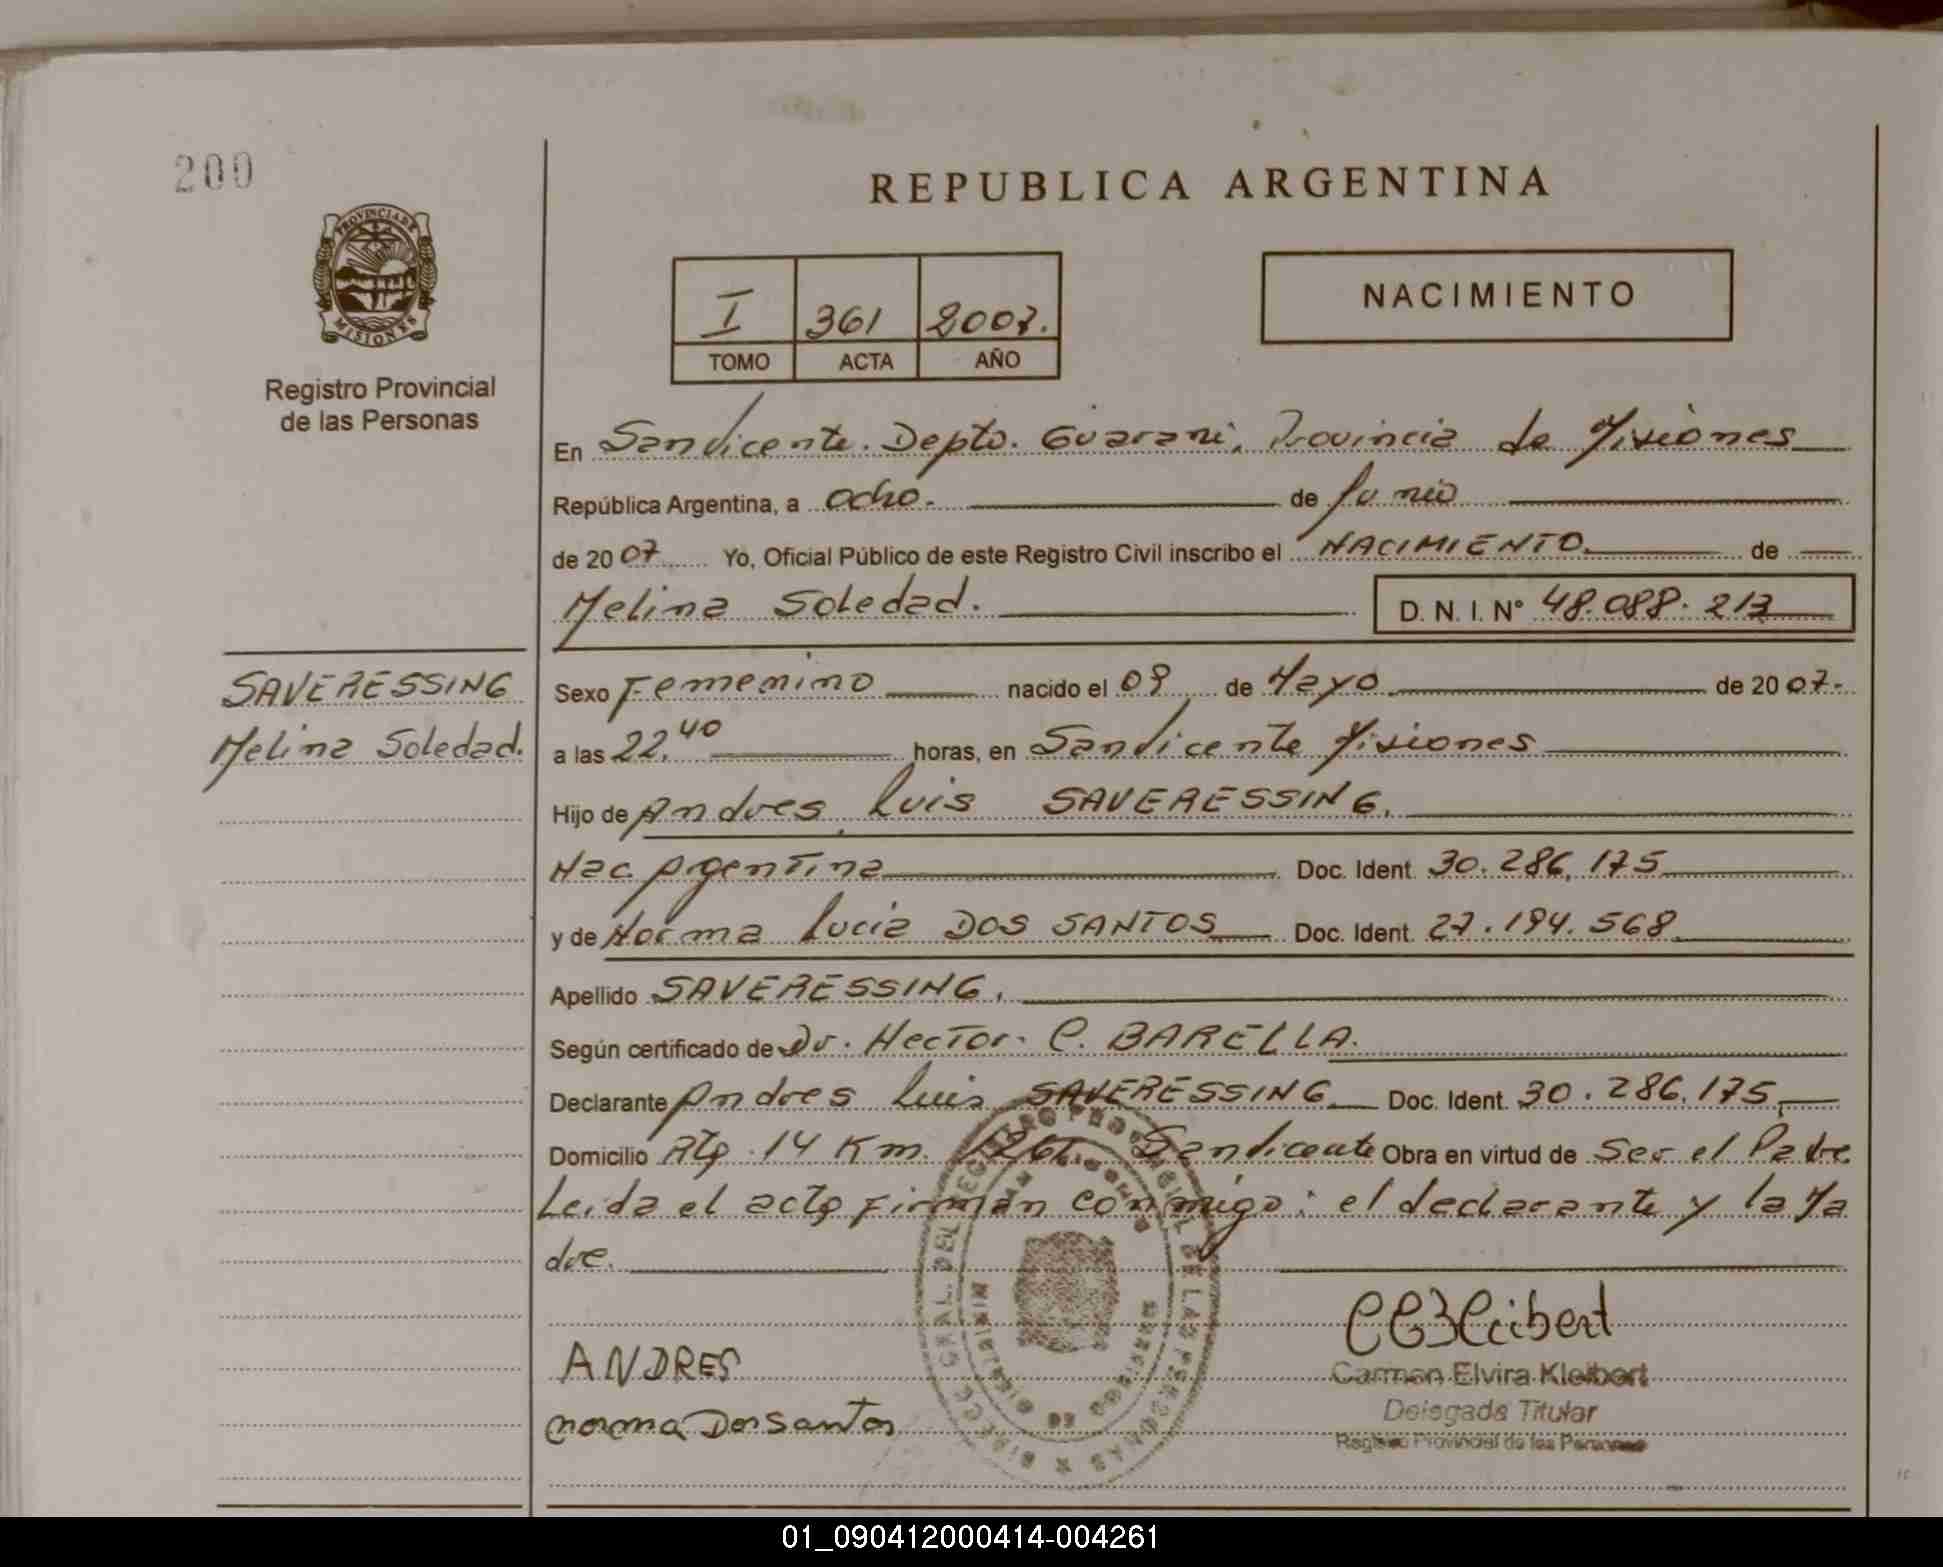 200
REPUBLICA ARGENTINA
PROVINCIA DE
MISIONES
Registro Provincial
de las Personas
I 361 2007.
TOMO ACTA AÑO
NACIMIENTO
En San Vicente. Depto. Guarani, Provincia de Misiones
República Argentina, a ocho. de Junio
de 2007 Yo, Oficial Público de este Registro Civil inscribo el NACIMIENTO de
Melina Soledad. D. N. I. N° 48.088.213
SAVERESSING
Melina Soledad.
Sexo Femenino nacido el 09 de Mayo de 2007.
a las 22,40 horas, en San Vicente Misiones
Hijo de Andres Luis SAVERESSING.
Nac Argentina Doc. Ident. 30.286.175
y de Norma Lucia DOS SANTOS Doc. Ident. 27.194.568
Apellido SAVERESSING.
Según certificado de Dr. Hector. C. BARELLA.
Declarante Andres Luis SAVERESSING Doc. Ident. 30.286.175,
Domicilio Km. San Vicente Obra en virtud de Ser el Padre
Leida el acta firman conmigo: el declarante y la Ma
dre.
ANDRES
Norma Dos Santos
Carmen Elvira Kleibert
Delegada Titular
Registro Provincial de las Personas
01_090412000414-004261